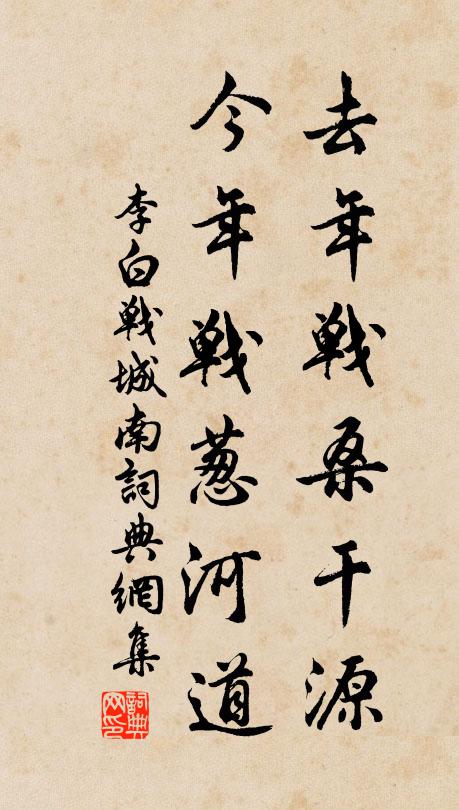 去年戦桑干源
今年戦葱河道
李白戦城南詞典網集
詞典网印